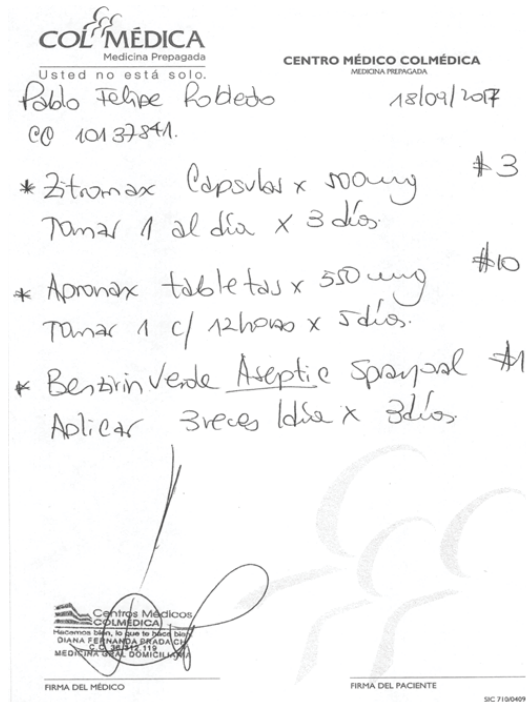 COLMÉDICA
Medicina Prepagada
Usted no está solo.
CENTRO MÉDICO COLMÉDICA
MEDICINA PREPAGADA
Pablo Felipe Robledo 18/09/2017
CC 10137841.
* Zitromax Cápsulas x 500mg #3
Tomar 1 al día x 3 días.
* Apronax tabletas x 550 mg #10
Tomar 1 c/ 12 horas x 5 días.
* Benzirin Verde Aseptic Spray oral #1
Aplicar 3 veces /día x 3 días.
Centros Médicos
COLMÉDICA
Hacemos bien, lo que te hace bien
DIANA FERNANDA PRADA
C.C. 36.312.119
MEDICINA GRAL DOMICILIARIA
FIRMA DEL MÉDICO
FIRMA DEL PACIENTE
SIC 710/0409